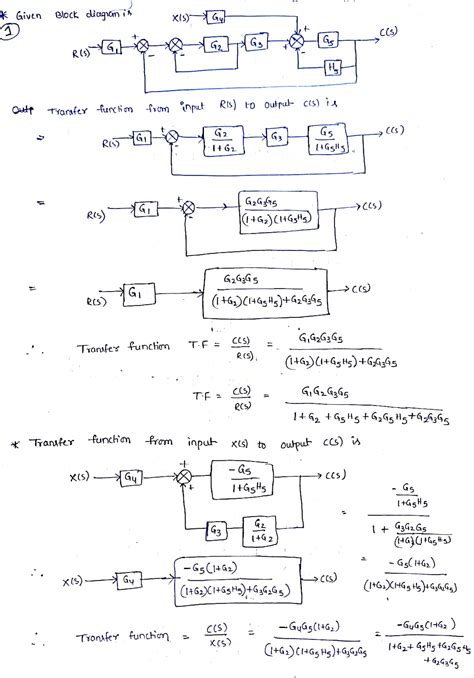 * Given Block diagram is
1
X(S) G4
R(S) G1 + - - G2 G3 + - G5 C(S)
H5
Outp Transfer function from input R(S) to output C(S) is
= R(S) G1 + - G2/(1+G2) G3 G5/(1+G5H5) C(S)
= R(S) G1 + - G2G3G5/((1+G2)(1+G5H5)) C(S)
= R(S) G1 G2G3G5/((1+G2)(1+G5H5)+G2G3G5) C(S)
∴ Transfer function T.F = C(S)/R(S) = G1G2G3G5/((1+G2)(1+G5H5)+G2G3G5)
T.F = C(S)/R(S) = G1G2G3G5/(1+G2+G5H5+G2G5H5+G2G3G5)
* Transfer function from input X(S) to output C(S) is
X(S) G4 + -G5/(1+G5H5) C(S)
G3 G2/(1+G2)
= (-G5/(1+G5H5))/(1+G3G2G5/((1+G2)(1+G5H5)))
= -G5(1+G2)/((1+G2)(1+G5H5)+G3G2G5)
∴ X(S) G4 -G5(1+G2)/((1+G2)(1+G5H5)+G3G2G5) C(S)
∴ Transfer function = C(S)/X(S) = -G4G5(1+G2)/((1+G2)(1+G5H5)+G3G2G5) = -G4G5(1+G2)/(1+G2+G5H5+G2G5H5+G2G3G5)